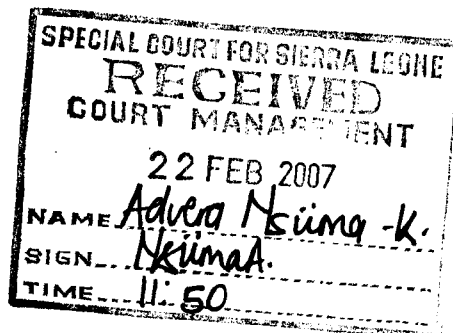 SPECIAL COURT FOR SIERRA LEONE
RECEIVED
COURT MANAGEMENT
22 FEB 2007
NAME Advera Nsiima -K.
SIGN NsiimaA.
TIME 11:50